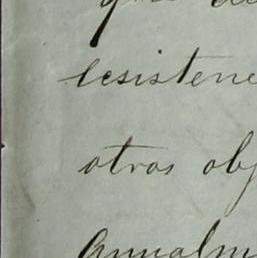 que de
lesistenc
otras obj
Anualm